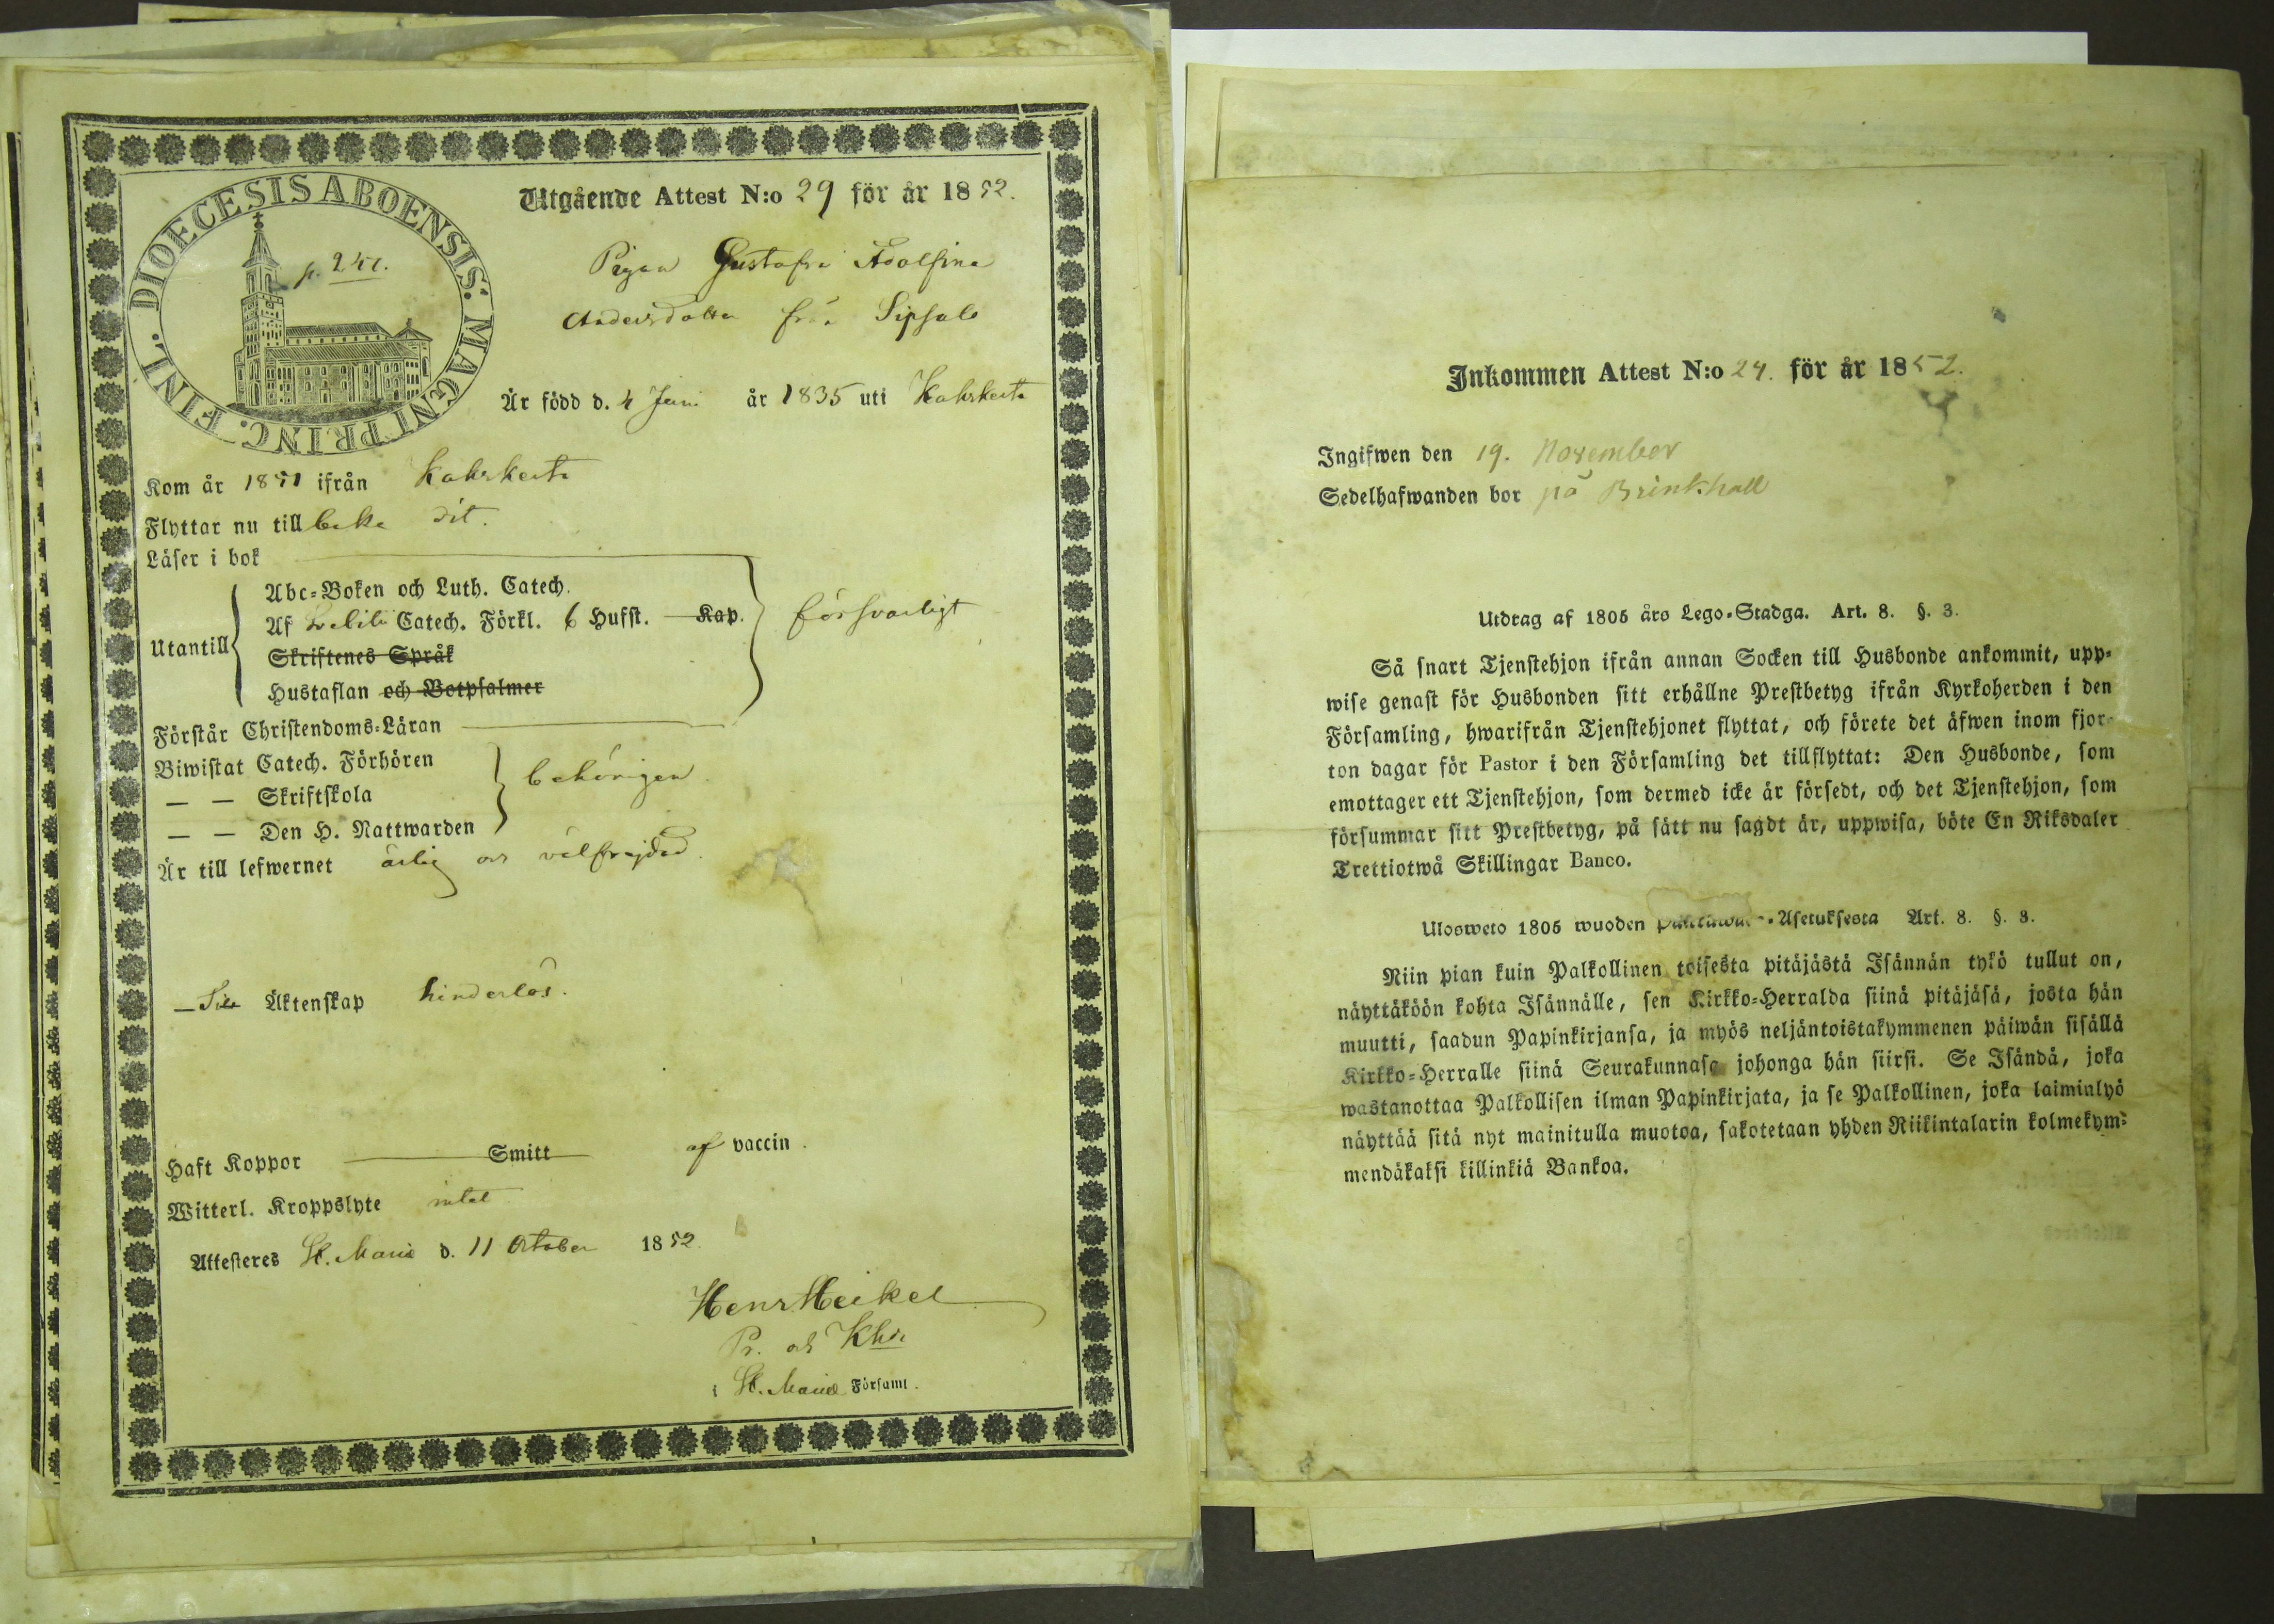 DIOECESIS ABOENSIS. MAGNI PRINC. FINL.
p. 241.
Utgående Attest N:o 29 för år 1852.
Pigan Gustafva Adolfina
Andersdotter från Sipsalo
Är född d. 4 Juni år 1835 uti Kakskerta
Kom år 1851 ifrån Kakskerta
Flyttar nu till baka dit.
Läser i bok
Utantill
Abc-Boken och Luth. Catech.
Af Catech. Förkl. 6 Hufst. Kap.
Skriftenes Språk
Hustaflan och Botpsalmer
försvarligt
Förstår Christendoms-Läran
Biwistat Catech. Förhören
— — Skriftskola
— — Den H. Nattwarden
behörigen
Är till lefwernet ärlig och välfrejdad.
— Till Äktenskap hinderlös.
Haft Koppor Smitt af vaccin.
Witterl. Kroppslyte intet
Attesteres St. Mariæ d. 11 October 1852.
Henr Heikel
Pr. och Khde
i St. Mariæ Församl.
Inkommen Attest N:o 24. för år 1852.
Ingifwen den 19. November
Sedelhafwanden bor på Brinkhall
Utdrag af 1805 års Lego-Stadga. Art. 8. §. 3.
Så snart Tjenstehjon ifrån annan Socken till Husbonde ankommit, upp-
wise genast för Husbonden sitt erhållne Prestbetyg ifrån Kyrkoherden i den
Församling, hwarifrån Tjenstehjonet flyttat, och förete det äfwen inom fjor-
ton dagar för Pastor i den Församling det tillflyttat: Den Husbonde, som
emottager ett Tjenstehjon, som dermed icke är försedt, och det Tjenstehjon, som
försummar sitt Prestbetyg, på sätt nu sagdt är, uppwisa, böte En Riksdaler
Trettiotwå Skillingar Banco.
Ulosweto 1805 wuoden Asetuksesta Art. 8. §. 3.
Niin pian kuin Palkollinen toisesta pitäjästä Isännän tykö tullut on,
näyttäköön kohta Isännälle, sen Kirkko-Herralda siinä pitäjäsä, josta hän
muutti, saadun Papinkirjansa, ja myös neljäntoistakymmenen päiwän sisällä
Kirkko-Herralle siinä Seurakunnasa johonga hän siirsi. Se Isändä, joka
wastanottaa Palkollisen ilman Papinkirjata, ja se Palkollinen, joka laiminlyö
näyttää sitä nyt mainitulla muotoa, sakotetaan yhden Riikintalarin kolmekym-
mendäkaksi killinkiä Bankoa.